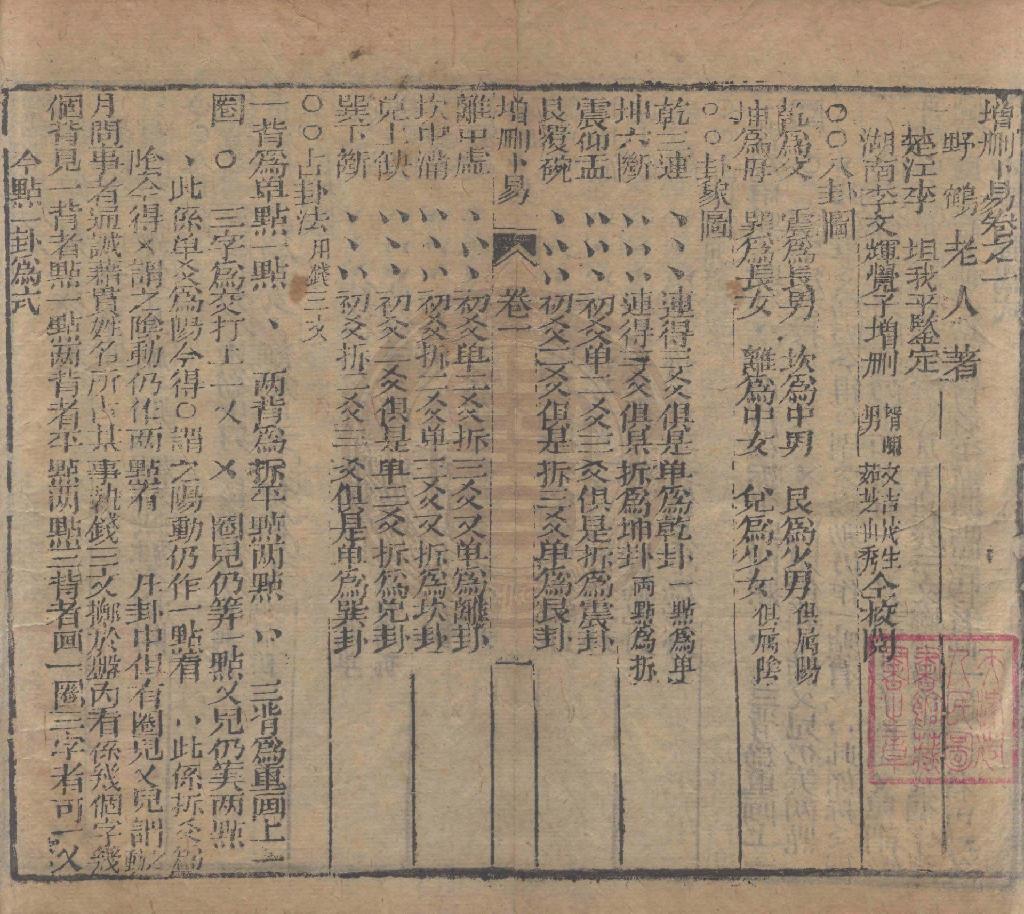 增刪卜易卷之一
野鶴老人著
楚江李 坦我平鑒定
湖南李文輝覺子增刪 男茹芝山秀 全校閱
○○八卦圖
乾為父 震為長男 坎為中男 艮為少男 俱属陽
坤為母 巽為長女 離為中女 兌為少女 俱属陰
○○卦象圖
乾三連 、、、 連得三爻俱是单為乾卦 一點為单
坤六斷 〃〃〃 連得三爻俱是折為坤卦 两點為拆
震仰盂 〃〃、 初爻单二爻三爻俱是折為震卦
艮覆碗 、〃〃 初爻二爻俱是拆三爻单為艮卦
增刪卜易 卷一
離中虛 、〃、 初爻单二爻拆三爻又单為離卦
坎中滿 〃、〃 初爻拆二爻单三爻又拆為坎卦
兌上缺 〃、、 初爻二爻俱是单三爻拆為兌卦
巽下斷 、、〃 初爻拆二爻三爻俱是单為巽卦
○○占卦法 用錢三文
一背為单點一點 、 两背為拆平點两點 〃 三背為重画上一
圈 ○ 三字為交打上一乂 乂 圈兒仍筭一點乂兒仍筭两點
、此係单爻為陽今得○謂之陽動仍作一點看 〃此係拆爻為
陰今得乂謂之陰動仍作两點看 凡卦中但有圈兒乂兒謂之動
月問事者通誠籍貫姓名所占某事執錢三文擲於盤内看係幾個字幾
個背見一背者點一點两背者平點两點三背者画一圈三字者可一乂
今點一卦為式